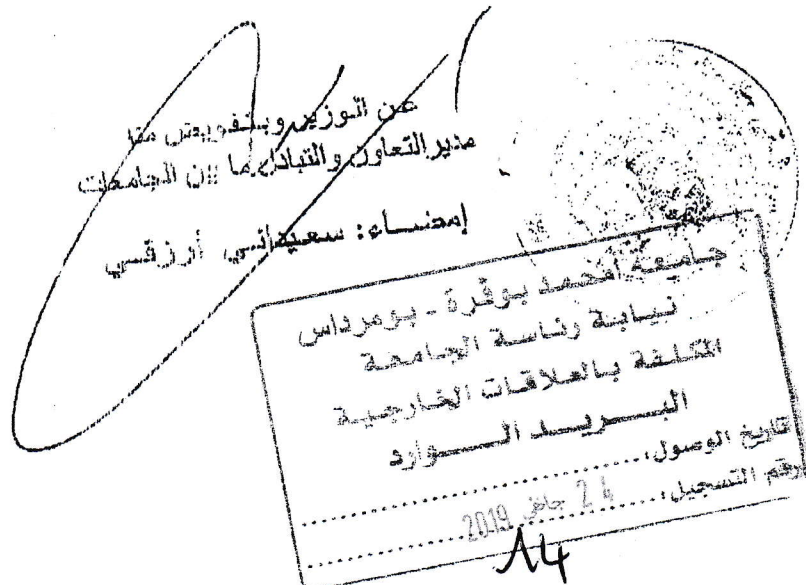 عن الوزير وبتفويض منه
مدير التعاون والتبادل ما بين الجامعات
إمضاء: سعيداني أرزقي
جامعة امحمد بوقرة - بومرداس
نيابة رئاسة الجامعة
المكلفة بالعلاقات الخارجية
البريد الوارد
تاريخ الوصول: 24 جانفي 2019
رقم التسجيل: 14